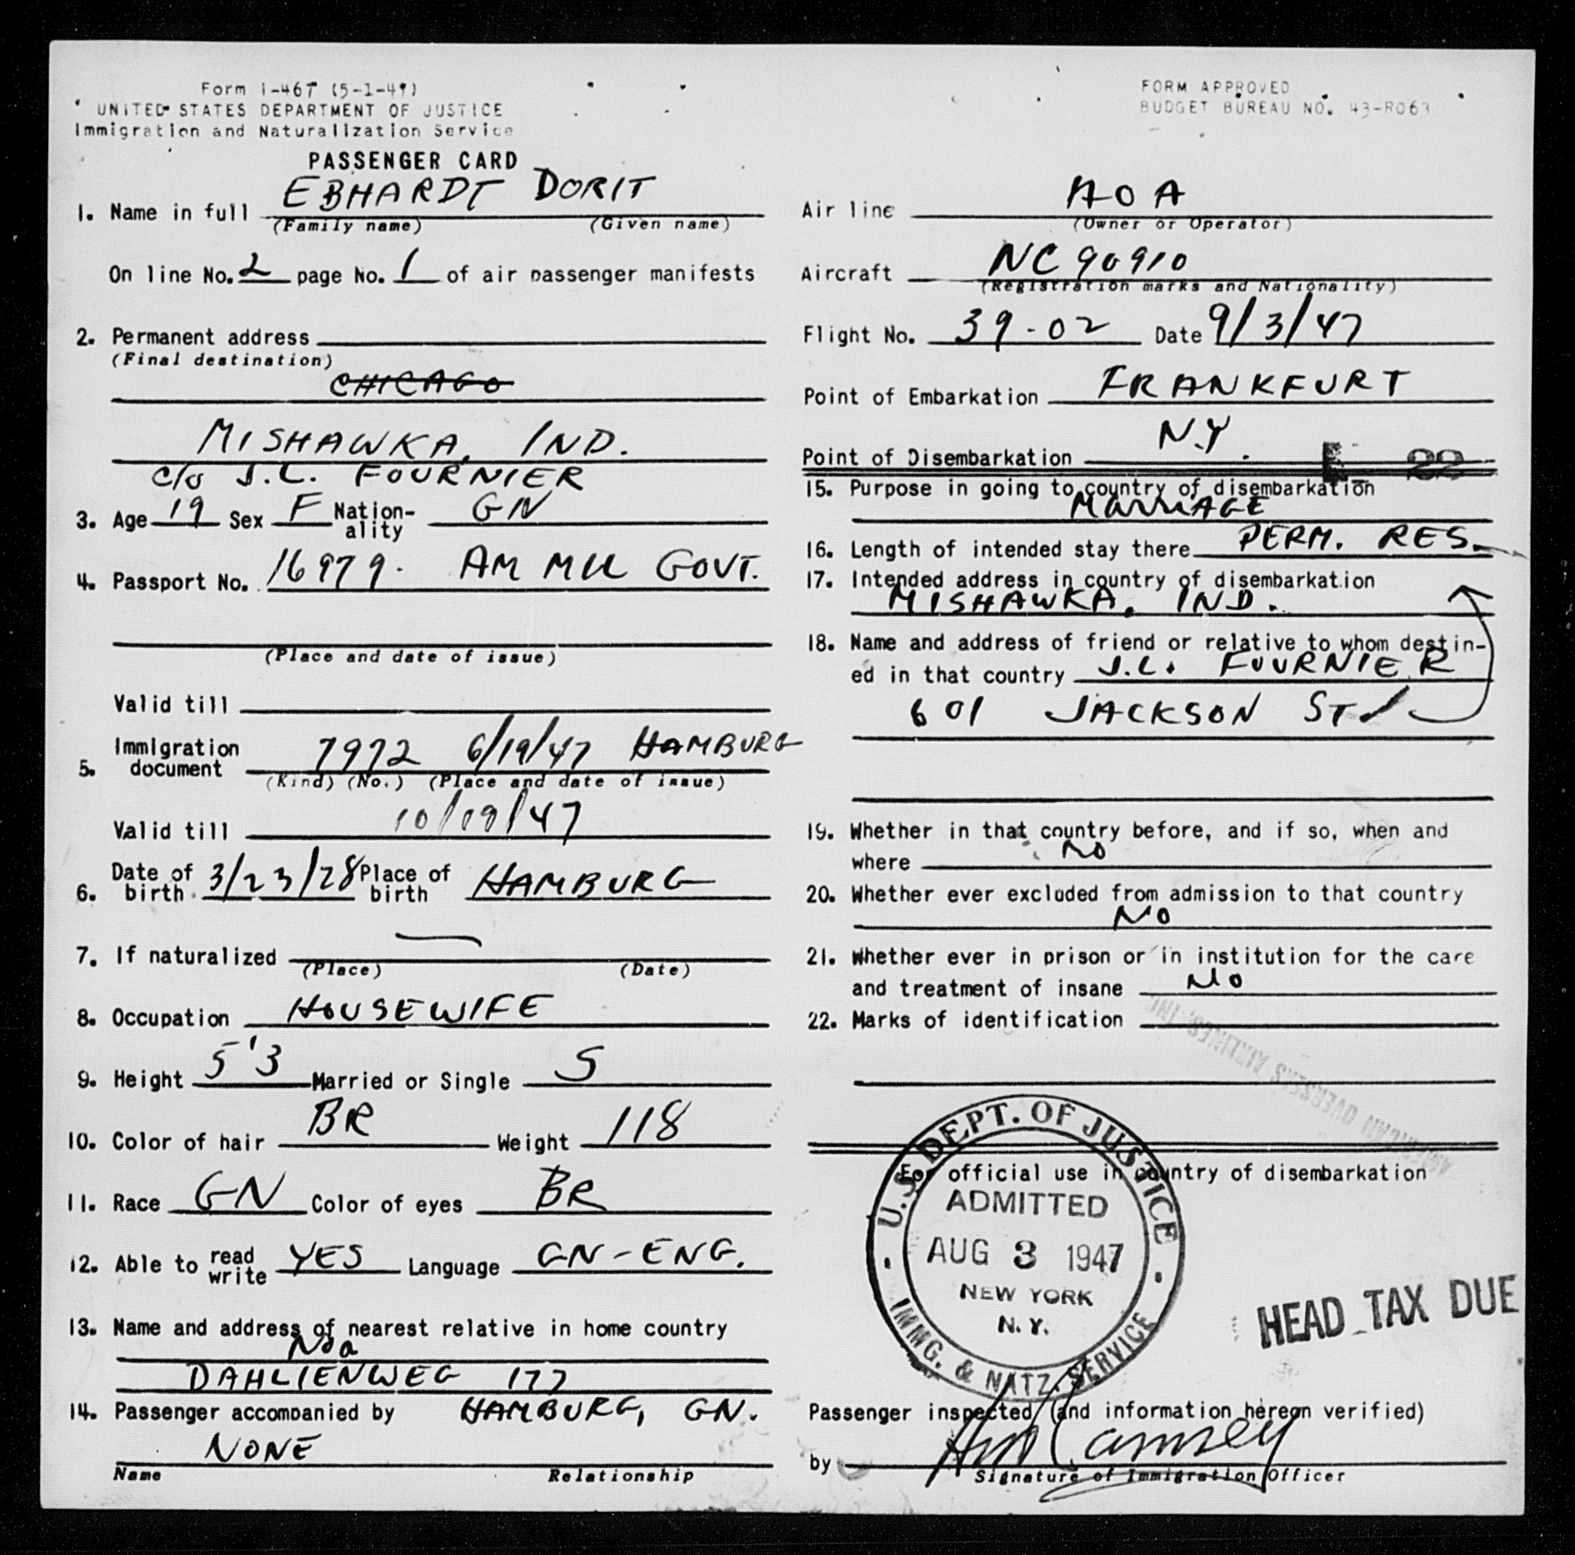 Form I-467 (5-1-47)
UNITED STATES DEPARTMENT OF JUSTICE
Immigration and Naturalization Service
PASSENGER CARD
FORM APPROVED
BUDGET BUREAU NO. 43-R063
1. Name in full EBHARDT DORIT
(Family name) (Given name)
On line No. 2 page No. 1 of air passenger manifests
2. Permanent address
(Final destination)
CHICAGO
MISHAWKA, IND.
c/o J.L. FOURNIER
3. Age 19 Sex F Nation-ality GN
4. Passport No. 16979. AM MIL GOVT.
(Place and date of issue)
Valid till
5. Immigration document 7972 6/19/47 HAMBURG
(Kind) (No.) (Place and date of issue)
Valid till 10/19/47
6. Date of birth 3/23/28 Place of birth HAMBURG
7. If naturalized —
(Place) (Date)
8. Occupation HOUSEWIFE
9. Height 5'3 Married or Single S
10. Color of hair BR Weight 118
11. Race GN Color of eyes BR
12. Able to read write YES Language GN-ENG.
13. Name and address of nearest relative in home country
DAHLIENWEG 177
HAMBURG, GN.
14. Passenger accompanied by
NONE
Name Relationship
Air line AOA
(Owner or Operator)
Aircraft NC 90910
(Registration marks and Nationality)
Flight No. 39-02 Date 9/3/47
Point of Embarkation FRANKFURT
Point of Disembarkation N.Y.
22
15. Purpose in going to country of disembarkation
MARRIAGE
16. Length of intended stay there PERM. RES.
17. Intended address in country of disembarkation
MISHAWKA, IND.
18. Name and address of friend or relative to whom destin-
ed in that country J.L. FOURNIER
601 JACKSON ST
19. Whether in that country before, and if so, when and
where NO
20. Whether ever excluded from admission to that country
NO
21. Whether ever in prison or in institution for the care
and treatment of insane NO
22. Marks of identification
AMERICAN OVERSEAS AIRLINES, INC.
For official use in country of disembarkation
U.S. DEPT. OF JUSTICE
ADMITTED
AUG 3 1947
NEW YORK
N.Y.
IMMG. & NATZ. SERVICE
HEAD TAX DUE
Passenger inspected (and information hereon verified)
by
Signature of Immigration Officer